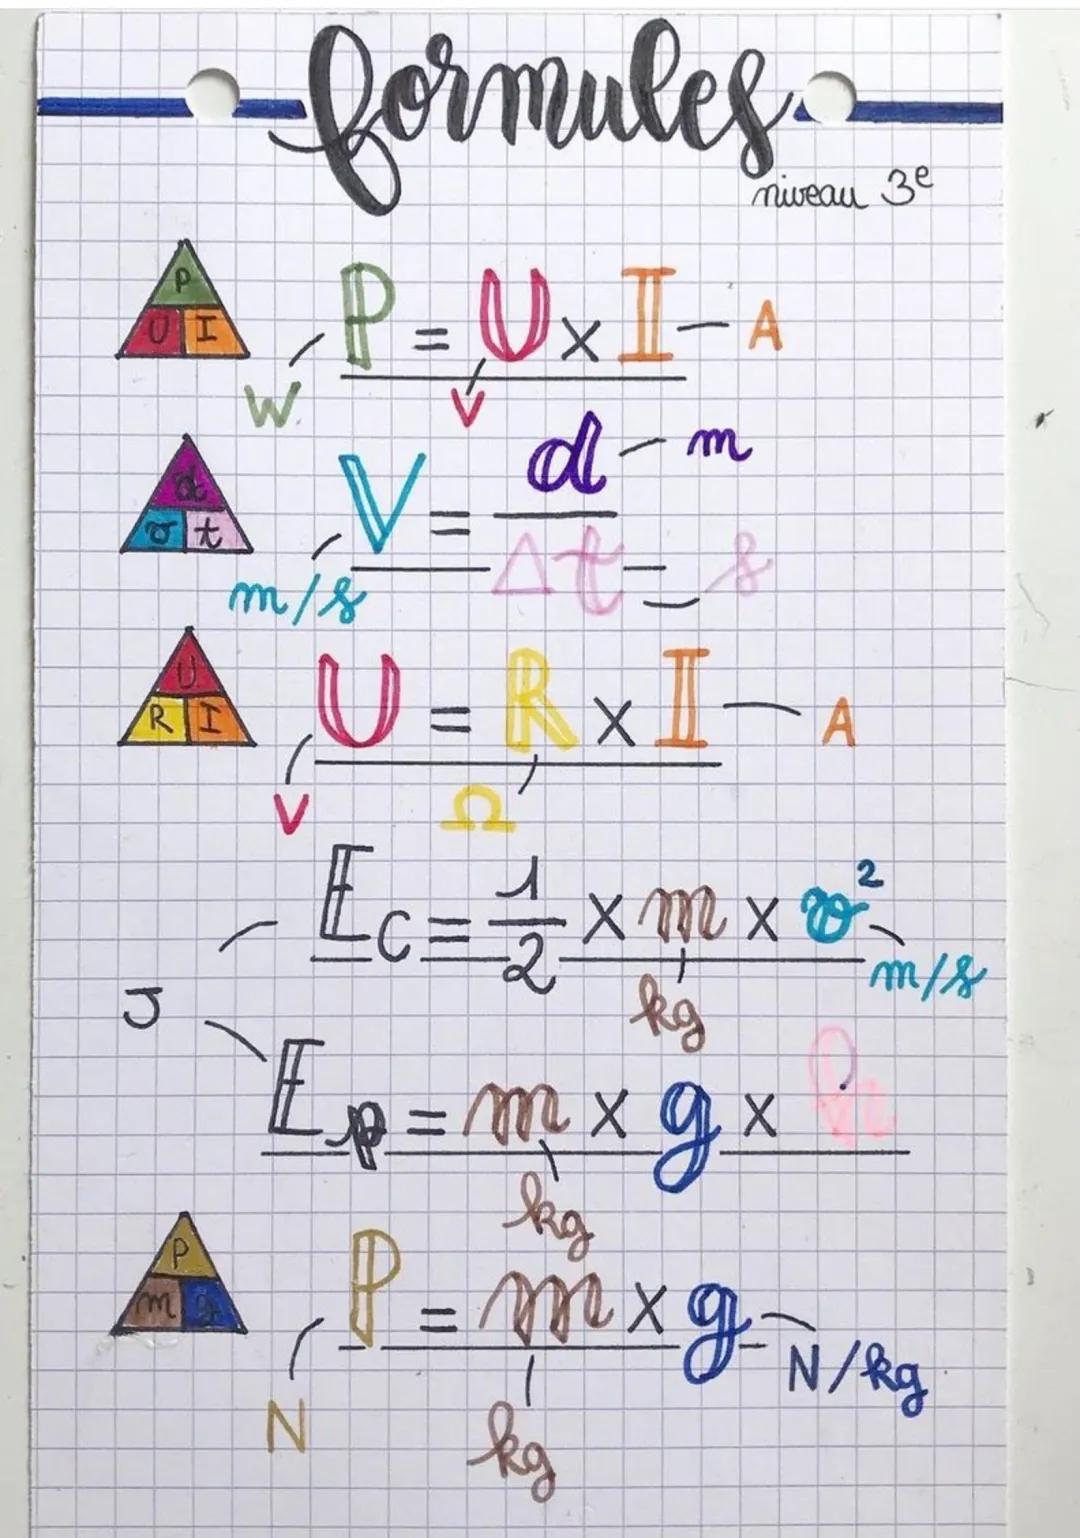 formules
niveau 3e
P
U I
P = U x I - A
W V
d
v t
V = d / Δt
m
m/s s
U
R I
U = R x I - A
V Ω
Ec = 1/2 x m x v²
kg m/s
J
Ep = m x g x h
kg
P
m g
P = m x g
N kg N/kg